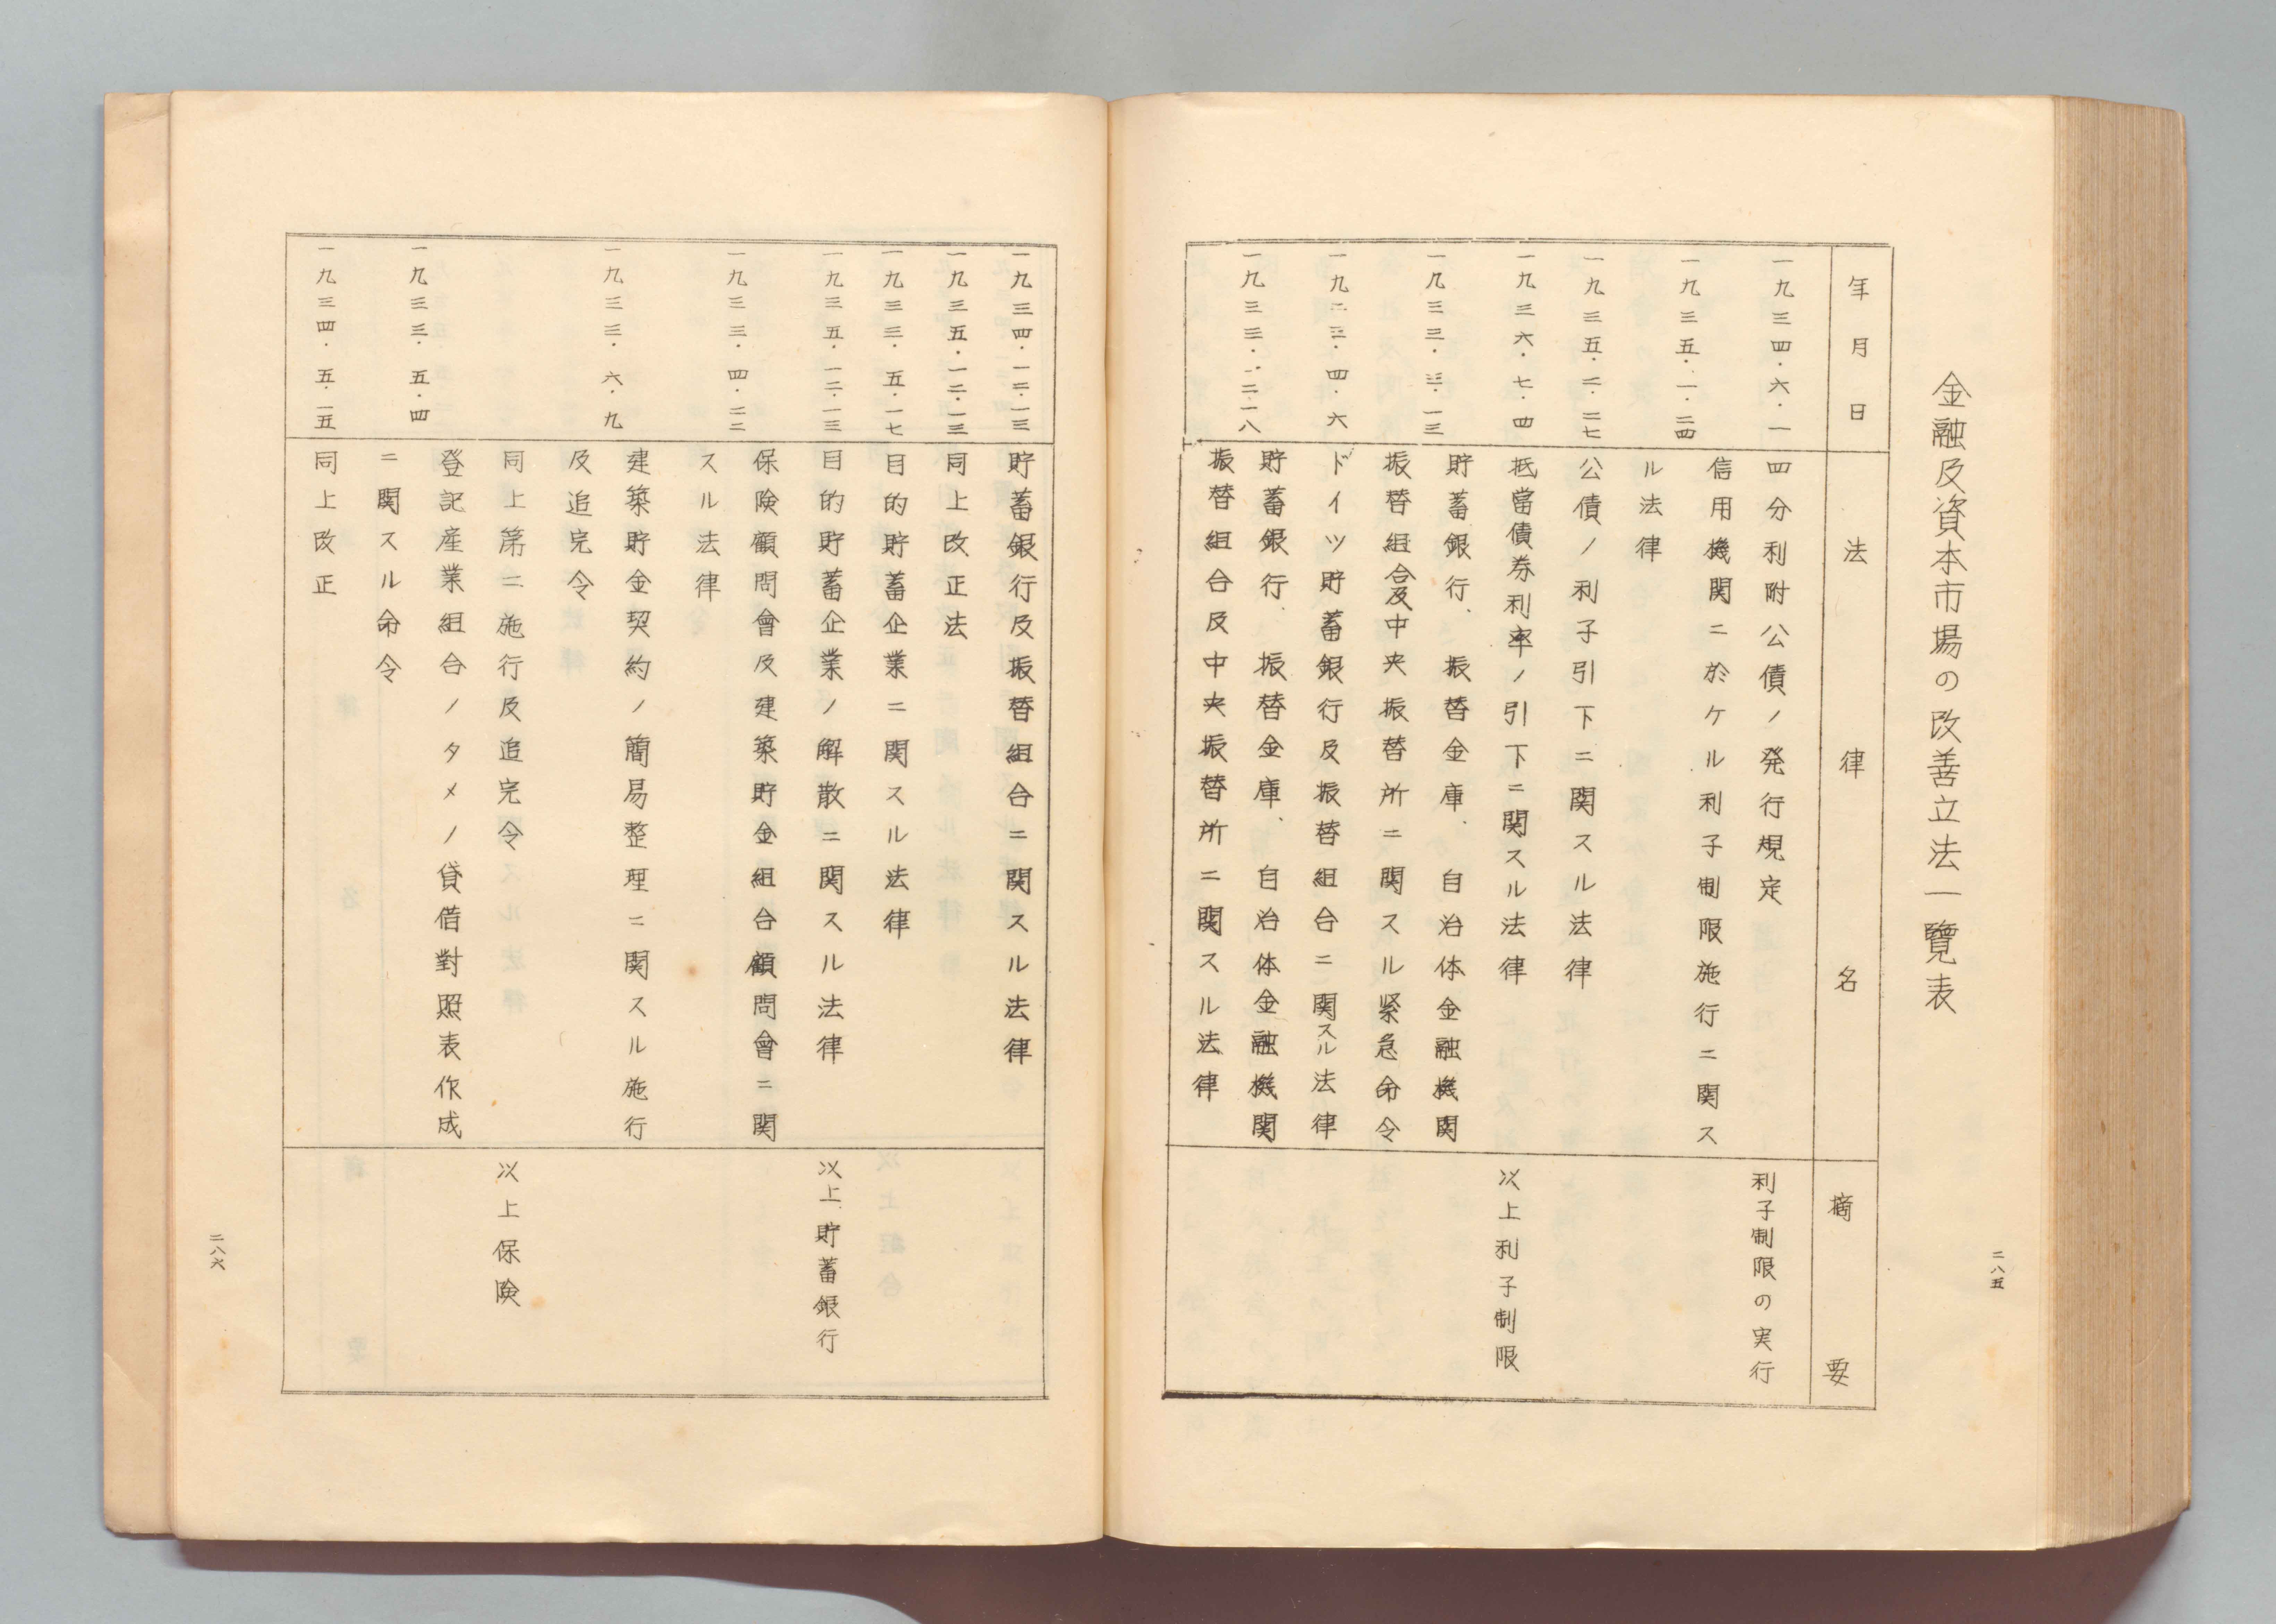 金融及資本市場の改善立法一覽表
年月日
法律名
摘要
一九三四・六・一
四分利附公債ノ発行規定
利子制限の実行
一九三五・一・二四
信用機関ニ於ケル利子制限施行ニ関ス
ル法律
一九三五・二・二七
公債ノ利子引下ニ関スル法律
一九三六・七・四
抵當債券利率ノ引下ニ関スル法律
以上利子制限
一九三三・三・一三
貯蓄銀行、振替金庫、自治体金融機関
振替組合及中央振替所ニ関スル緊急命令
一九三三・四・六
ドイツ貯蓄銀行及振替組合ニ関スル法律
貯蓄銀行、振替金庫、自治体金融機関
振替組合及中央振替所ニ関スル法律
二八五
一九三四・一二・一三
貯蓄銀行及振替組合ニ関スル法律
一九三五・一二・一三
同上改正法
一九三三・五・一七
目的貯蓄企業ニ関スル法律
一九三五・一二・一三
目的貯蓄企業ノ解散ニ関スル法律
以上貯蓄銀行
一九三三・四・二二
保険顧問會及建築貯金組合顧問會ニ関
スル法律
一九三三・六・九
建築貯金契約ノ簡易整理ニ関スル施行
及追完令
同上第二施行及追完令
以上保険
一九三三・五・四
登記産業組合ノタメノ貸借對照表作成
ニ関スル命令
一九三四・五・一五
同上改正
二八六